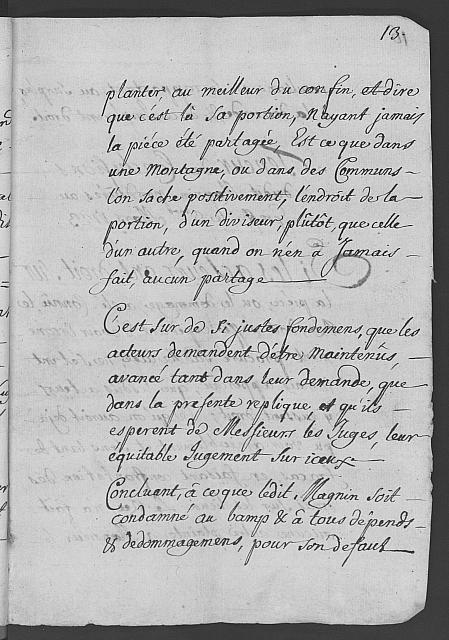 13.
planter, au meilleur du confin, et dire
que c'est là sa portion, N'ayant jamais
la piéce été partagée, Est ce que dans
une Montagne, ou dans des Communs
l'on sache positivement, l'endroit de la
portion, d'un diviseur, plûtôt, que celle
d'un autre, quand on n'en à Jamais
fait, aucun partage
C'est sur de si justes fondemens, que les
acteurs demandent d'être Maintenûs,
avancé tant dans leur demande, que
dans la présente replique, et qu'ils
esperent de Messieurs les Juges, leur
equitable Jugement sur iceux
Concluant, à ce que ledit Magnin soit
condamné au bamp & à tous dépends
& dedommagemens, pour son defaut